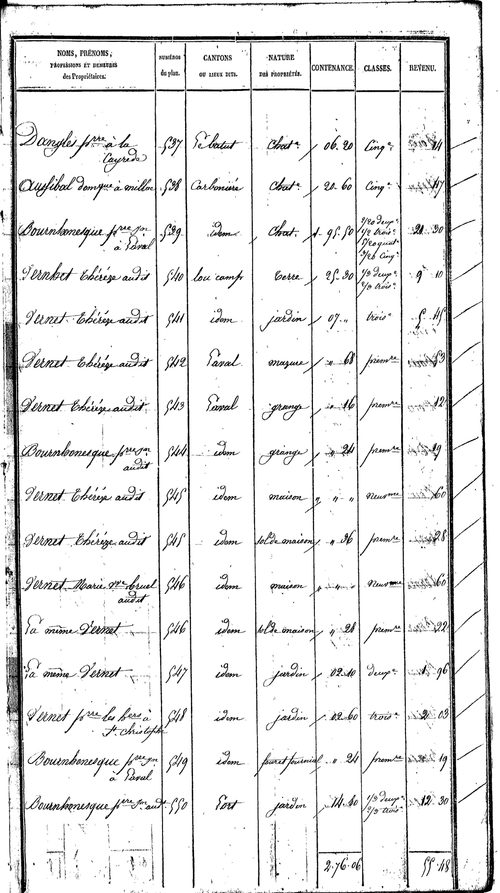 NOMS, PRÉNOMS, PROFESSIONS ET DEMEURES des Propriétaires. NUMÉROS du plan. CANTONS OU LIEUX DITS. NATURE DES PROPRIÉTÉS. CONTENANCE. CLASSES. REVENU.
Dangles p.rre à la Cayrède 537 Le batut Chat.e 06.20 Cinq.e 14
Aussibal domque à millau 538 Carbonière Chat.e 20.60 Cinq.e 47
Bournhonesque p.rre jn à Laval 539 idem Chat. 1.95.50 deux.e trois.e quat. cinq.e 21 30
Vernhet Thérèze audit 540 lou camp Terre 25.30 1/3 deux.e 2/3 trois.e 9 10
Vernet Thérèze audit 541 idem jardin 07 " trois.e 5 45
Vernet Thérèze audit 542 Laval mazure " 68 prem.re 53
Vernet Thérèze audit 543 Laval grange " 16 prem.re 12
Bournhonesque p.rre jn audit 544 idem grange " 24 prem.re 19
Vernet Thérèze audit 545 idem maison " " " neuv.me 60
Vernet Thérèze audit 545 idem sol de maison " 36 prem.re 28
Vernet Marie v.ve bruel audit 546 idem maison " " " neuv.me 60
La même Vernet 546 idem sol de maison " 28 prem.re 22
La même Vernet 547 idem jardin 02.10 deux.e 1 96
Vernet p.rre les h.ers à St. Christophe 548 idem jardin 02.60 trois.e 2 03
Bournhonesque p.rre jn à Laval 549 idem four et fournial " 24 prem.re 19
Bournhonesque p.rre jn aud. 550 Lort jardin 14.40 1/3 deux.e 2/3 trois.e 12 30
2.76.06 55.48